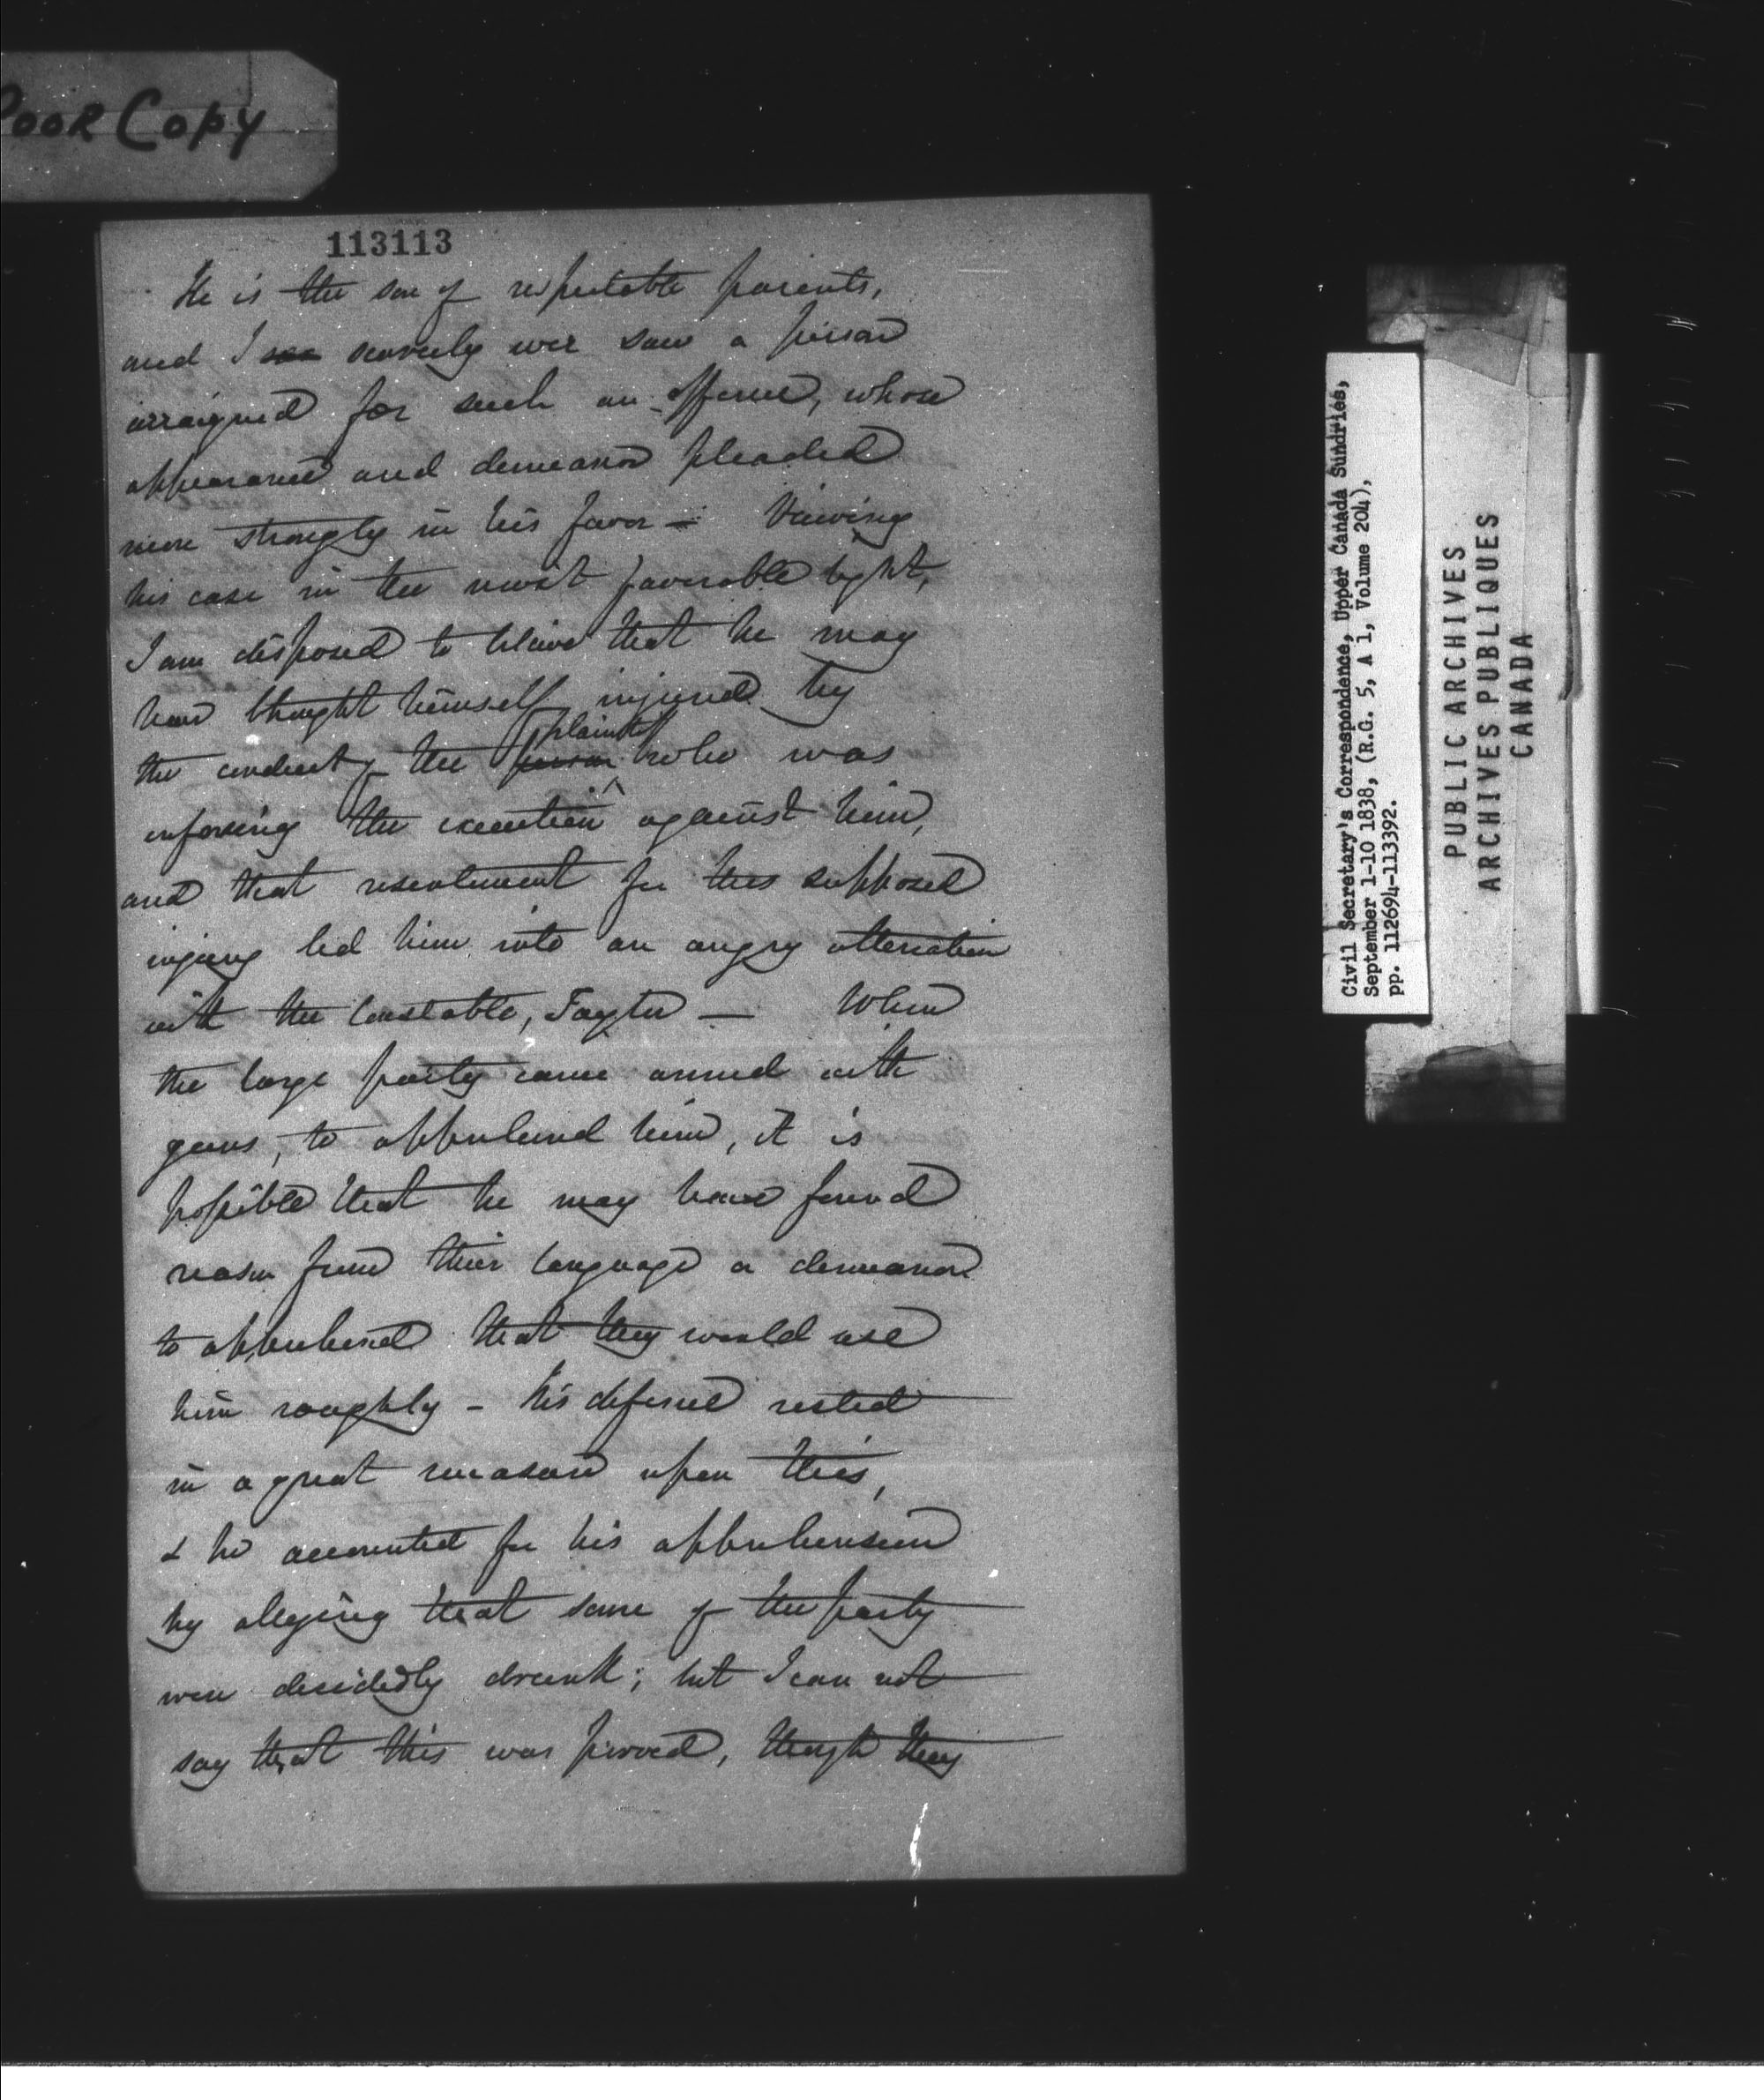 POOR COPY
113113
He is the son of respectable parents,
and I saw scarcely ever saw a person
arraigned for such an offence, whose
appearance and demeanor pleaded
more strongly in his favor — Viewing
his case in the most favorable light,
I am disposed to believe that he may
have thought himself injured by
the conduct of the person plaintiff who was
enforcing the execution against him,
and that resentment for this supposed
injury led him into an angry altercation
with the Constable, —  When
the large party came armed with
guns, to apprehend him, it is
possible that he may have found
reason from their language or demeanor
to apprehend that they would use
him roughly — His defence rested
in a great measure upon this,
& he accounted for his apprehension
by alleging that some of the party
were decidedly drunk; but I can not
say that this was proved, though they
Civil Secretary's Correspondence, Upper Canada Sundries,
September 1-10 1838, (R.G. 5, A 1, Volume 204),
pp. 112694-113392.
PUBLIC ARCHIVES
ARCHIVES PUBLIQUES
CANADA